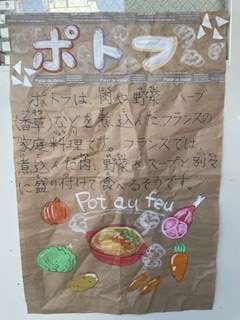 ポトフ
ポトフは肉や野菜 ハーブ
香草などを煮込んだフランスの
家庭料理です。フランスでは
煮込んだ肉、野菜をスープと別々
に盛り付けて食べるそうです。
Pot au feu